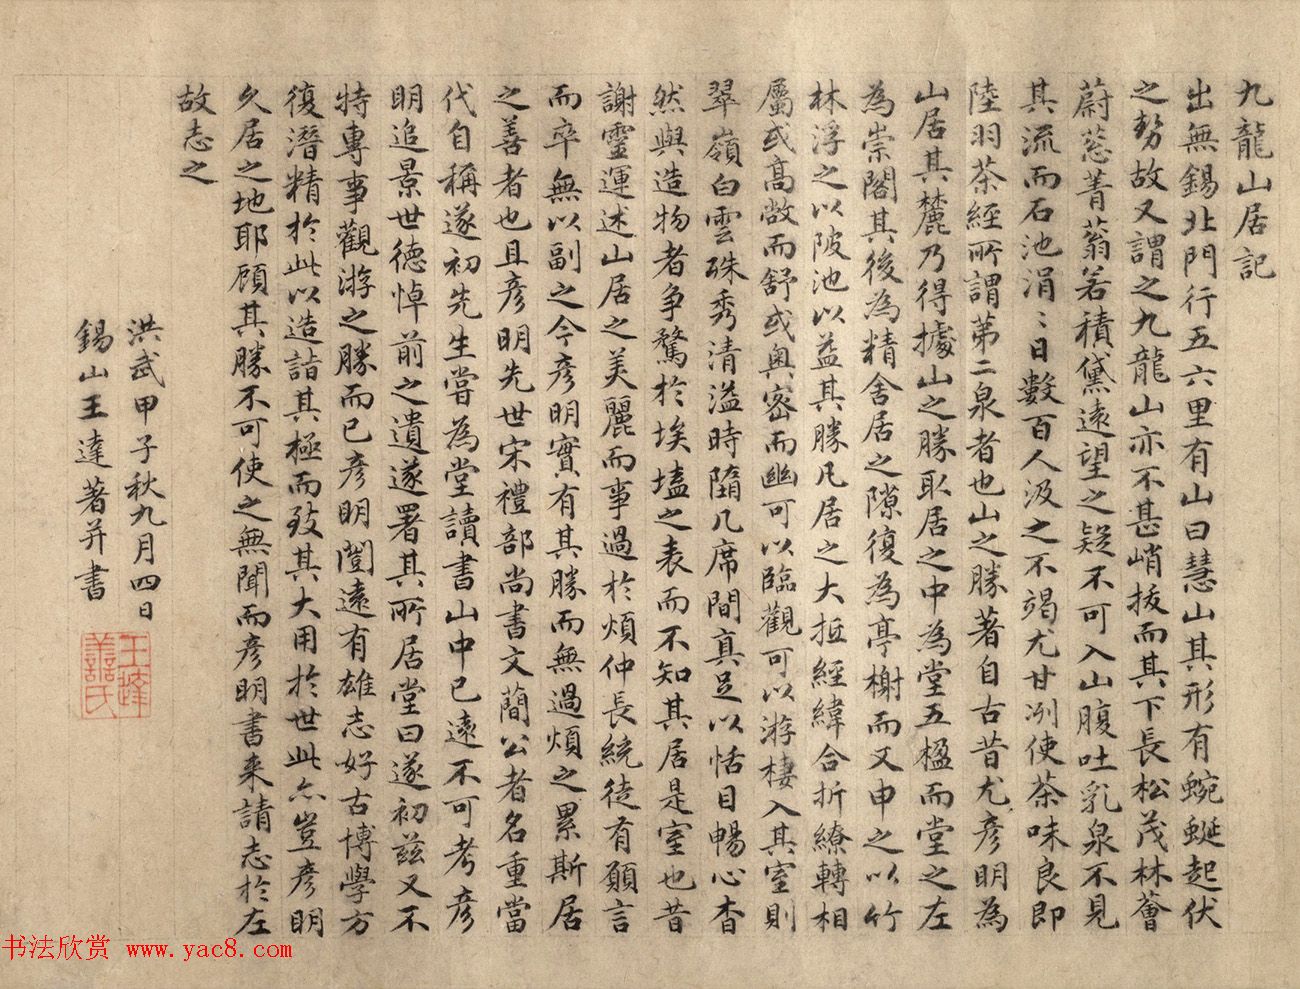 九龍山居記
出無錫北門行五六里有山曰慧山其形有蜿蜒起伏
之勢故又謂之九龍山亦不甚峭拔而其下長松茂林薈
蔚蔥菁蓊若積黛遠望之疑不可入山腹吐乳泉不見
其流而石池涓〻日數百人汲之不竭尤甘冽使茶味良即
陸羽茶經所謂第二泉者也山之勝著自古昔尤彥明為
山居其麓乃得據山之勝取居之中為堂五楹而堂之左
為崇閣其後為精舍居之隙復為亭榭而又申之以竹
林浮之以陂池以益其勝凡居之大抵經緯合折繚轉相
屬或高敞而舒或奧密而幽可以臨觀可以游棲入其室則
翠嶺白雲硃秀清溢時隨几席間真足以恬目暢心杳
然與造物者爭騖於埃壒之表而不知其居是室也昔
謝靈運述山居之美麗而事過於煩仲長統徒有願言
而卒無以副之今彥明實有其勝而無過煩之累斯居
之善者也且彥明先世宋禮部尚書文簡公者名重當
代自稱遂初先生嘗為堂讀書山中已遠不可考彥
明追景世德悼前之遺遂署其所居堂曰遂初茲又不
特專事觀游之勝而已彥明閭遠有雄志好古博學方
復潛精於此以造詣其極而致其大用於世此亦豈彥明
久居之地耶顧其勝不可使之無聞而彥明書来請志於左
故志之
洪武甲子秋九月四日
錫山王達著并書
王達
善氏
书法欣赏 www.yac8.com